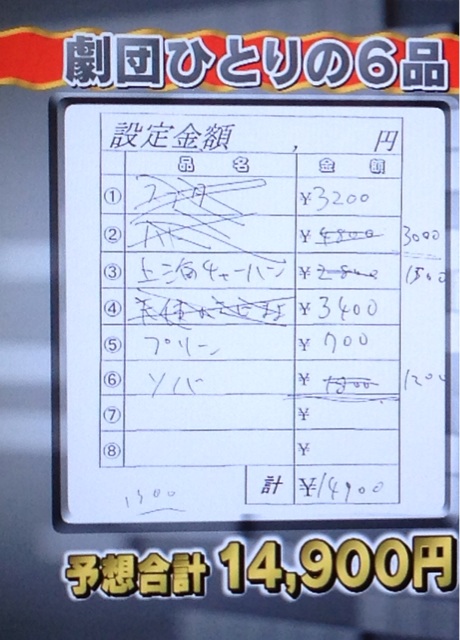 劇団ひとりの6品
設定金額 , 円
品名 金額
① ¥3200
② ¥4800 3000
③ 上海チャーハン ¥2800 1500
④ ¥3400
⑤ プリン ¥700
⑥ ソバ ¥ 1200
⑦ ¥
⑧ ¥
計 ¥14900
1300
予想合計 14,900円